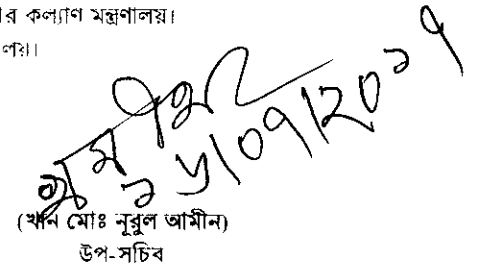 র কল্যাণ মন্ত্রণালয়।
লয়।
১৬/০৭/২০১৭
(খান মোঃ নূরুল আমীন)
উপ-সচিব